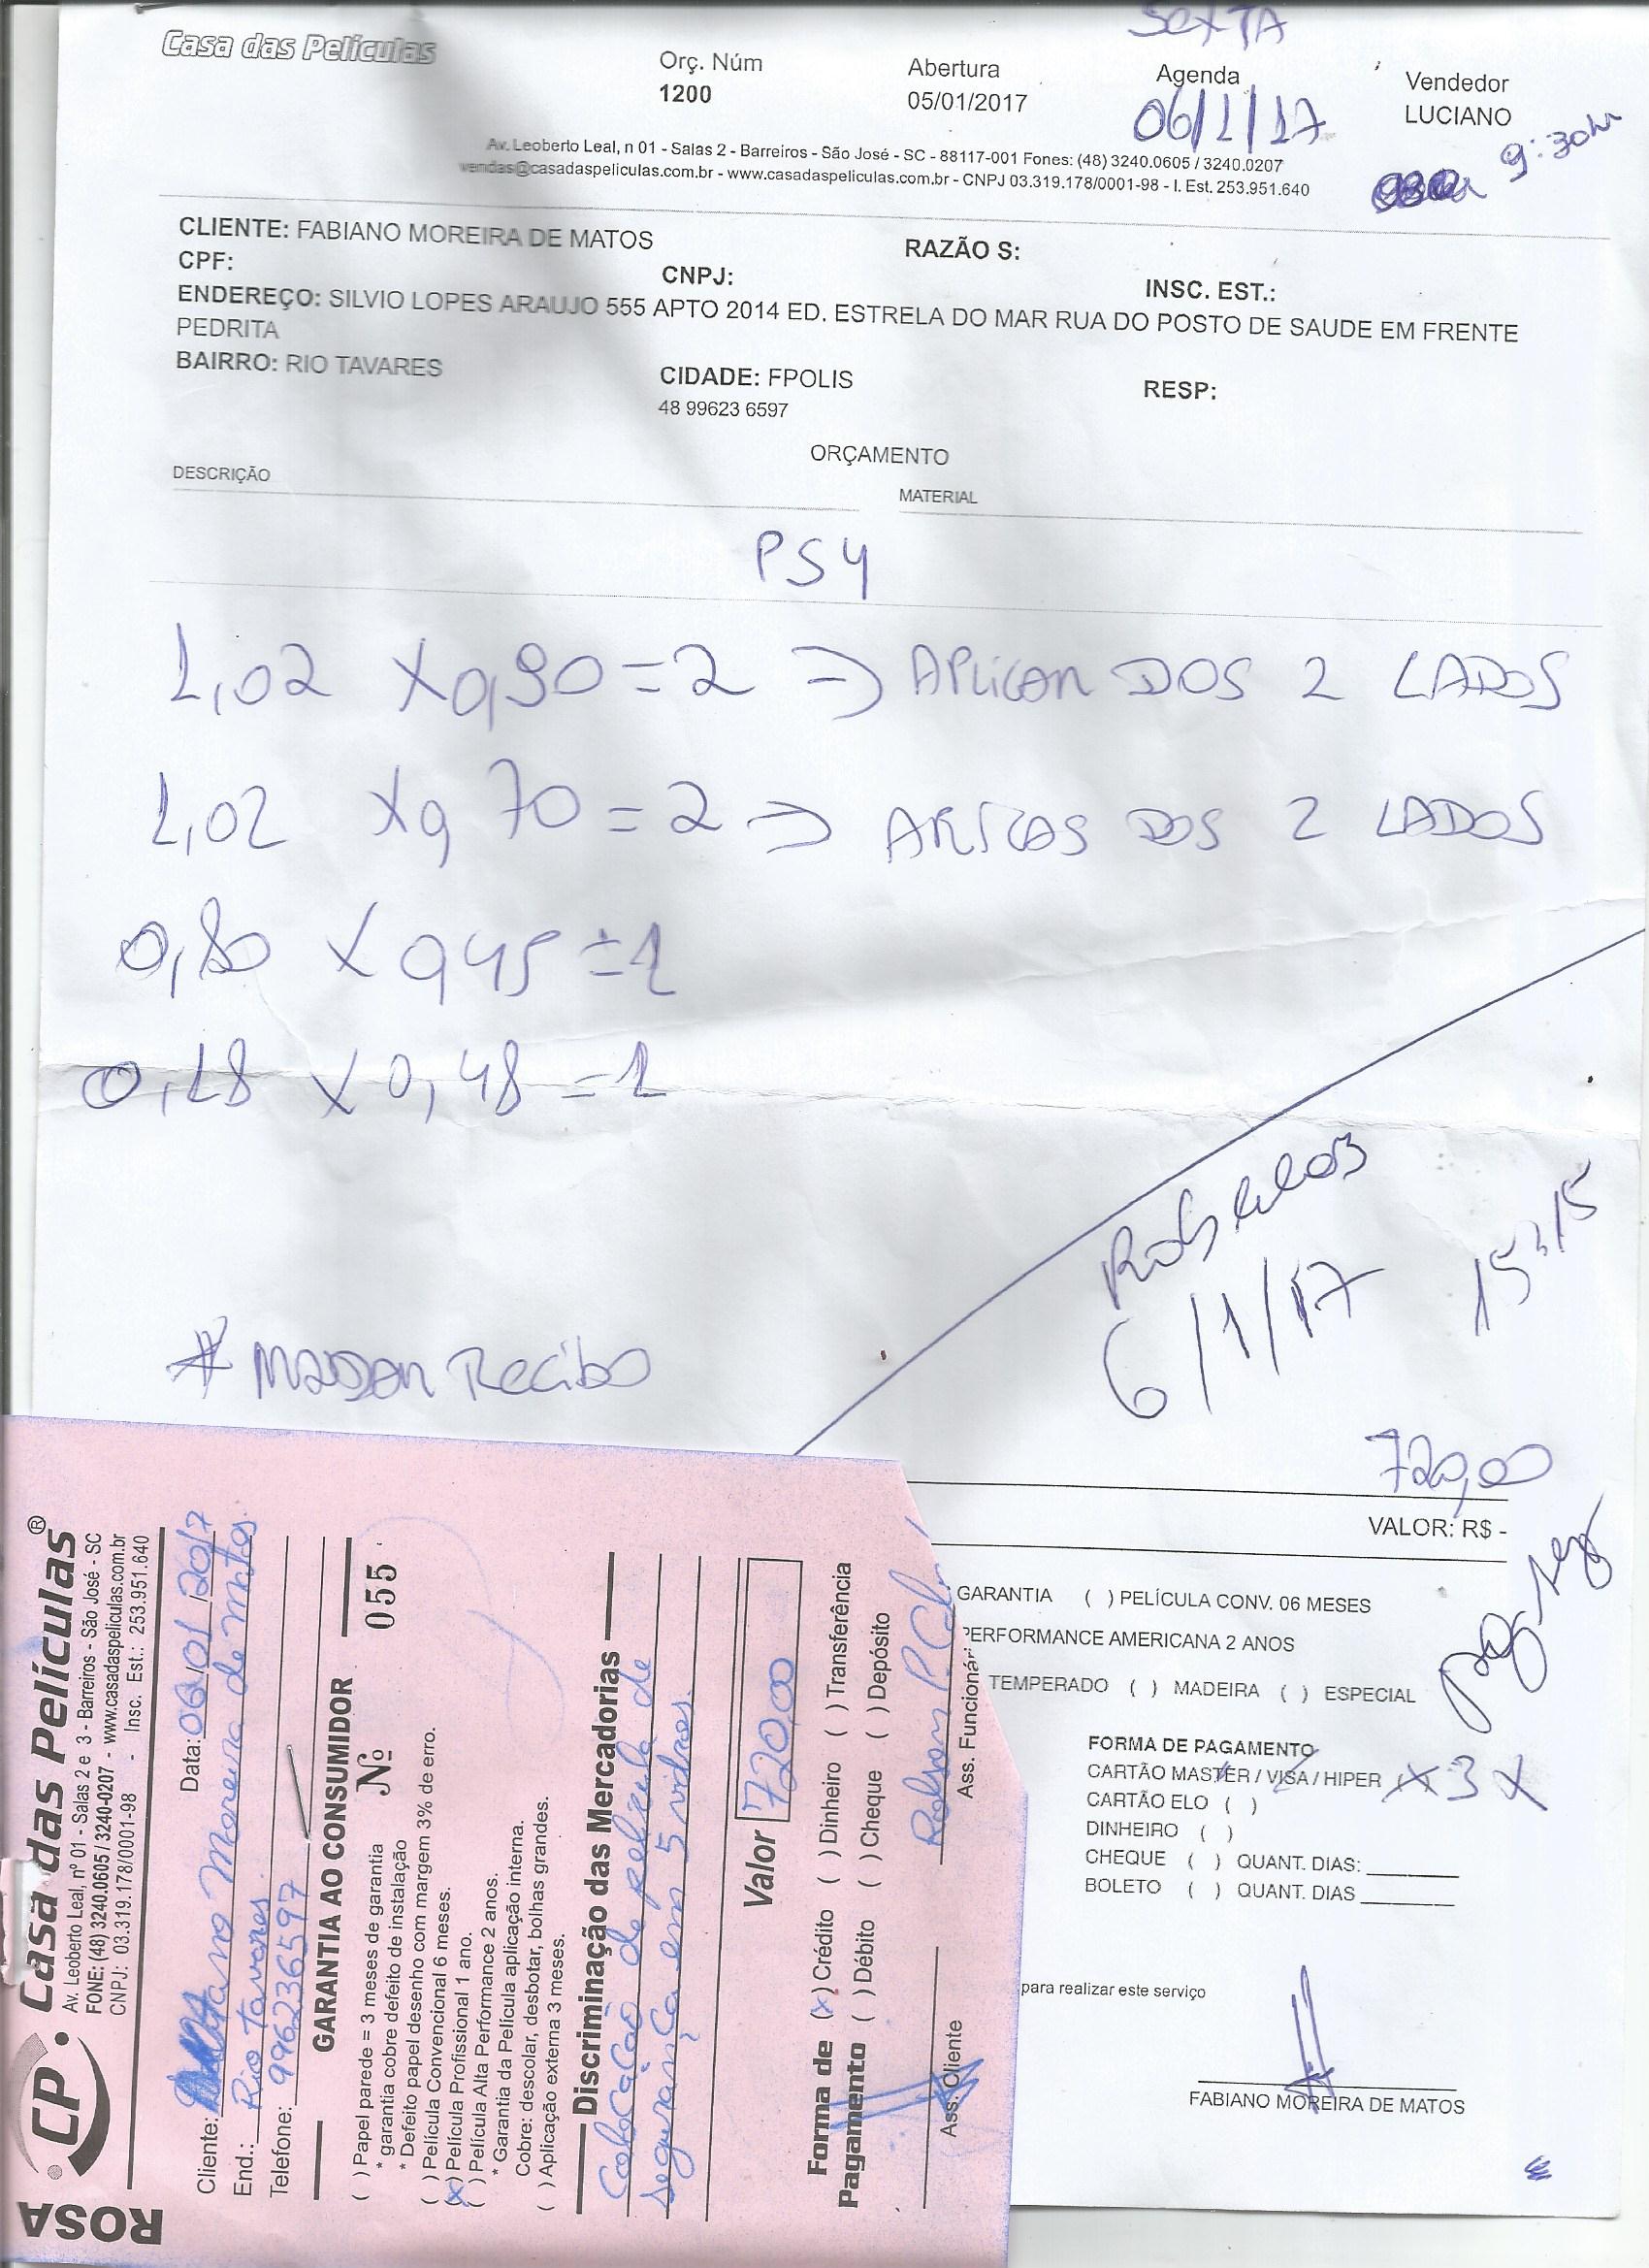 SEXTA
Casa das Películas
Orç. Núm
1200
Abertura
05/01/2017
Agenda
06/1/17
Vendedor
LUCIANO
9:30hr
Av. Leoberto Leal, n 01 - Salas 2 - Barreiros - São José - SC - 88117-001 Fones: (48) 3240.0605 / 3240.0207
vendas@casadaspeliculas.com.br - www.casadaspeliculas.com.br - CNPJ 03.319.178/0001-98 - I. Est. 253.951.640
CLIENTE: FABIANO MOREIRA DE MATOS
RAZÃO S:
CPF:
CNPJ:
INSC. EST.:
ENDEREÇO: SILVIO LOPES ARAUJO 555 APTO 2014 ED. ESTRELA DO MAR RUA DO POSTO DE SAUDE EM FRENTE
PEDRITA
BAIRRO: RIO TAVARES
CIDADE: FPOLIS
RESP:
48 99623 6597
ORÇAMENTO
DESCRIÇÃO
MATERIAL
PS4
1,02 X 0,90 = 2 => APLICAR DOS 2 LADOS
1,02 X 0,70 = 2 => DOS 2 LADOS
0,80 X 0,45 = 1
0,18 X 0,48 = 1
6/1/17
15h15
# MANDAR Recibo
720,00
VALOR: R$ -
GARANTIA ( ) PELÍCULA CONV. 06 MESES
PERFORMANCE AMERICANA 2 ANOS
TEMPERADO ( ) MADEIRA ( ) ESPECIAL
FORMA DE PAGAMENTO
CARTÃO MASTER / VISA / HIPER 3 X
CARTÃO ELO ( )
DINHEIRO ( )
CHEQUE ( ) QUANT. DIAS:
BOLETO ( ) QUANT. DIAS
para realizar este serviço
FABIANO MOREIRA DE MATOS
ROSA
CP
Casa das Películas®
Av. Leoberto Leal, nº 01 - Salas 2 e 3 - Barreiros - São José - SC
FONE: (48) 3240.0605 / 3240-0207 - www.casadaspeliculas.com.br
CNPJ: 03.319.178/0001-98 - Insc. Est.: 253.951.640
Data: 06/01/2017
Cliente: Moreira de Matos
End.: Rio Tavares
Telefone: 996236597
GARANTIA AO CONSUMIDOR
Nº 055
( ) Papel parede = 3 meses de garantia
* garantia cobre defeito de instalação
* Defeito papel desenho com margem 3% de erro.
( ) Película Convencional 6 meses.
(x) Película Profissional 1 ano.
( ) Película Alta Performance 2 anos.
* Garantia da Película aplicação interna.
Cobre: descolar, desbotar, bolhas grandes.
( ) Aplicação externa 3 meses.
Discriminação das Mercadorias
Colocação de pelicula de
segurança em 5 vidros.
Valor 720,00
Forma de Pagamento
(x) Crédito ( ) Dinheiro ( ) Transferência
( ) Débito ( ) Cheque ( ) Depósito
Ass. Cliente
Ass. Funcionár
Robson P.